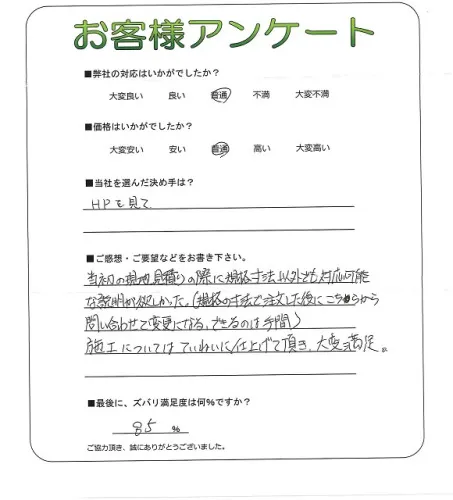 お客様アンケート
■弊社の対応はいかがでしたか？
大変良い 良い 普通 不満 大変不満
■価格はいかがでしたか？
大変安い 安い 普通 高い 大変高い
■当社を選んだ決め手は？
HPを見て
■ご感想・ご要望などをお書き下さい。
当初の現地見積りの際に規格寸法以外でも対応可能
な説明が欲しかった。(規格の寸法で注文した後にこちらから
問い合わせて変更になる、できるのは手間)
施工についてはていねいに仕上げて頂き、大変満足。
■最後に、ズバリ満足度は何%ですか？
85 %
ご協力頂き、誠にありがとうございました。